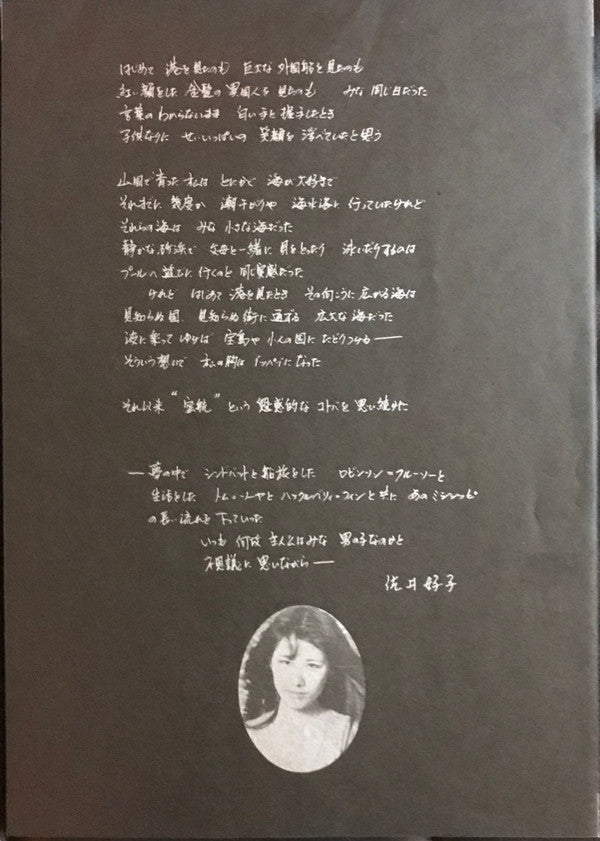 はじめて 港を見たのも 巨大な 外国船を見たのも
紅い顔をした 金髪の 異国人を 見たのも みな 同じ日だった
言葉の わからないまま 白い手と 握手したとき
子供なりに せいいっぱいの 笑顔を 浮べていたと思う
山国で育った 私は とにかく 海が大好きで
それまでに 幾度か 潮干がりや 海水浴に 行っていたけれど
それらの海は みな 小さな海だった
静かな 砂浜で 父母と一緒に 貝をとったり 泳いだりするのは
プールへ 遊びに 行くのと 同じ実感だった
けれど はじめて 港を見たとき その向こうに 広がる海は
見知らぬ国 見知らぬ街に 通ずる 広大な 海だった
波に乗って ゆけば 宝島や 小人の国に たどりつける——
そういう 想いで 私の胸は イッパイになった
それ以来 “密航” という 魅惑的な コトバを 思い続けた
—夢の中で シンドバットと 船旅をした ロビンソン=クルーソーと
生活をした トム=ソーヤと ハックルベリィ=フィンと 共に あの ミシシッピ
の 長い 流れを 下っていった
いつも 何故 主人公はみな 男の子なのかと
不思議に 思いながら——
佐井好子